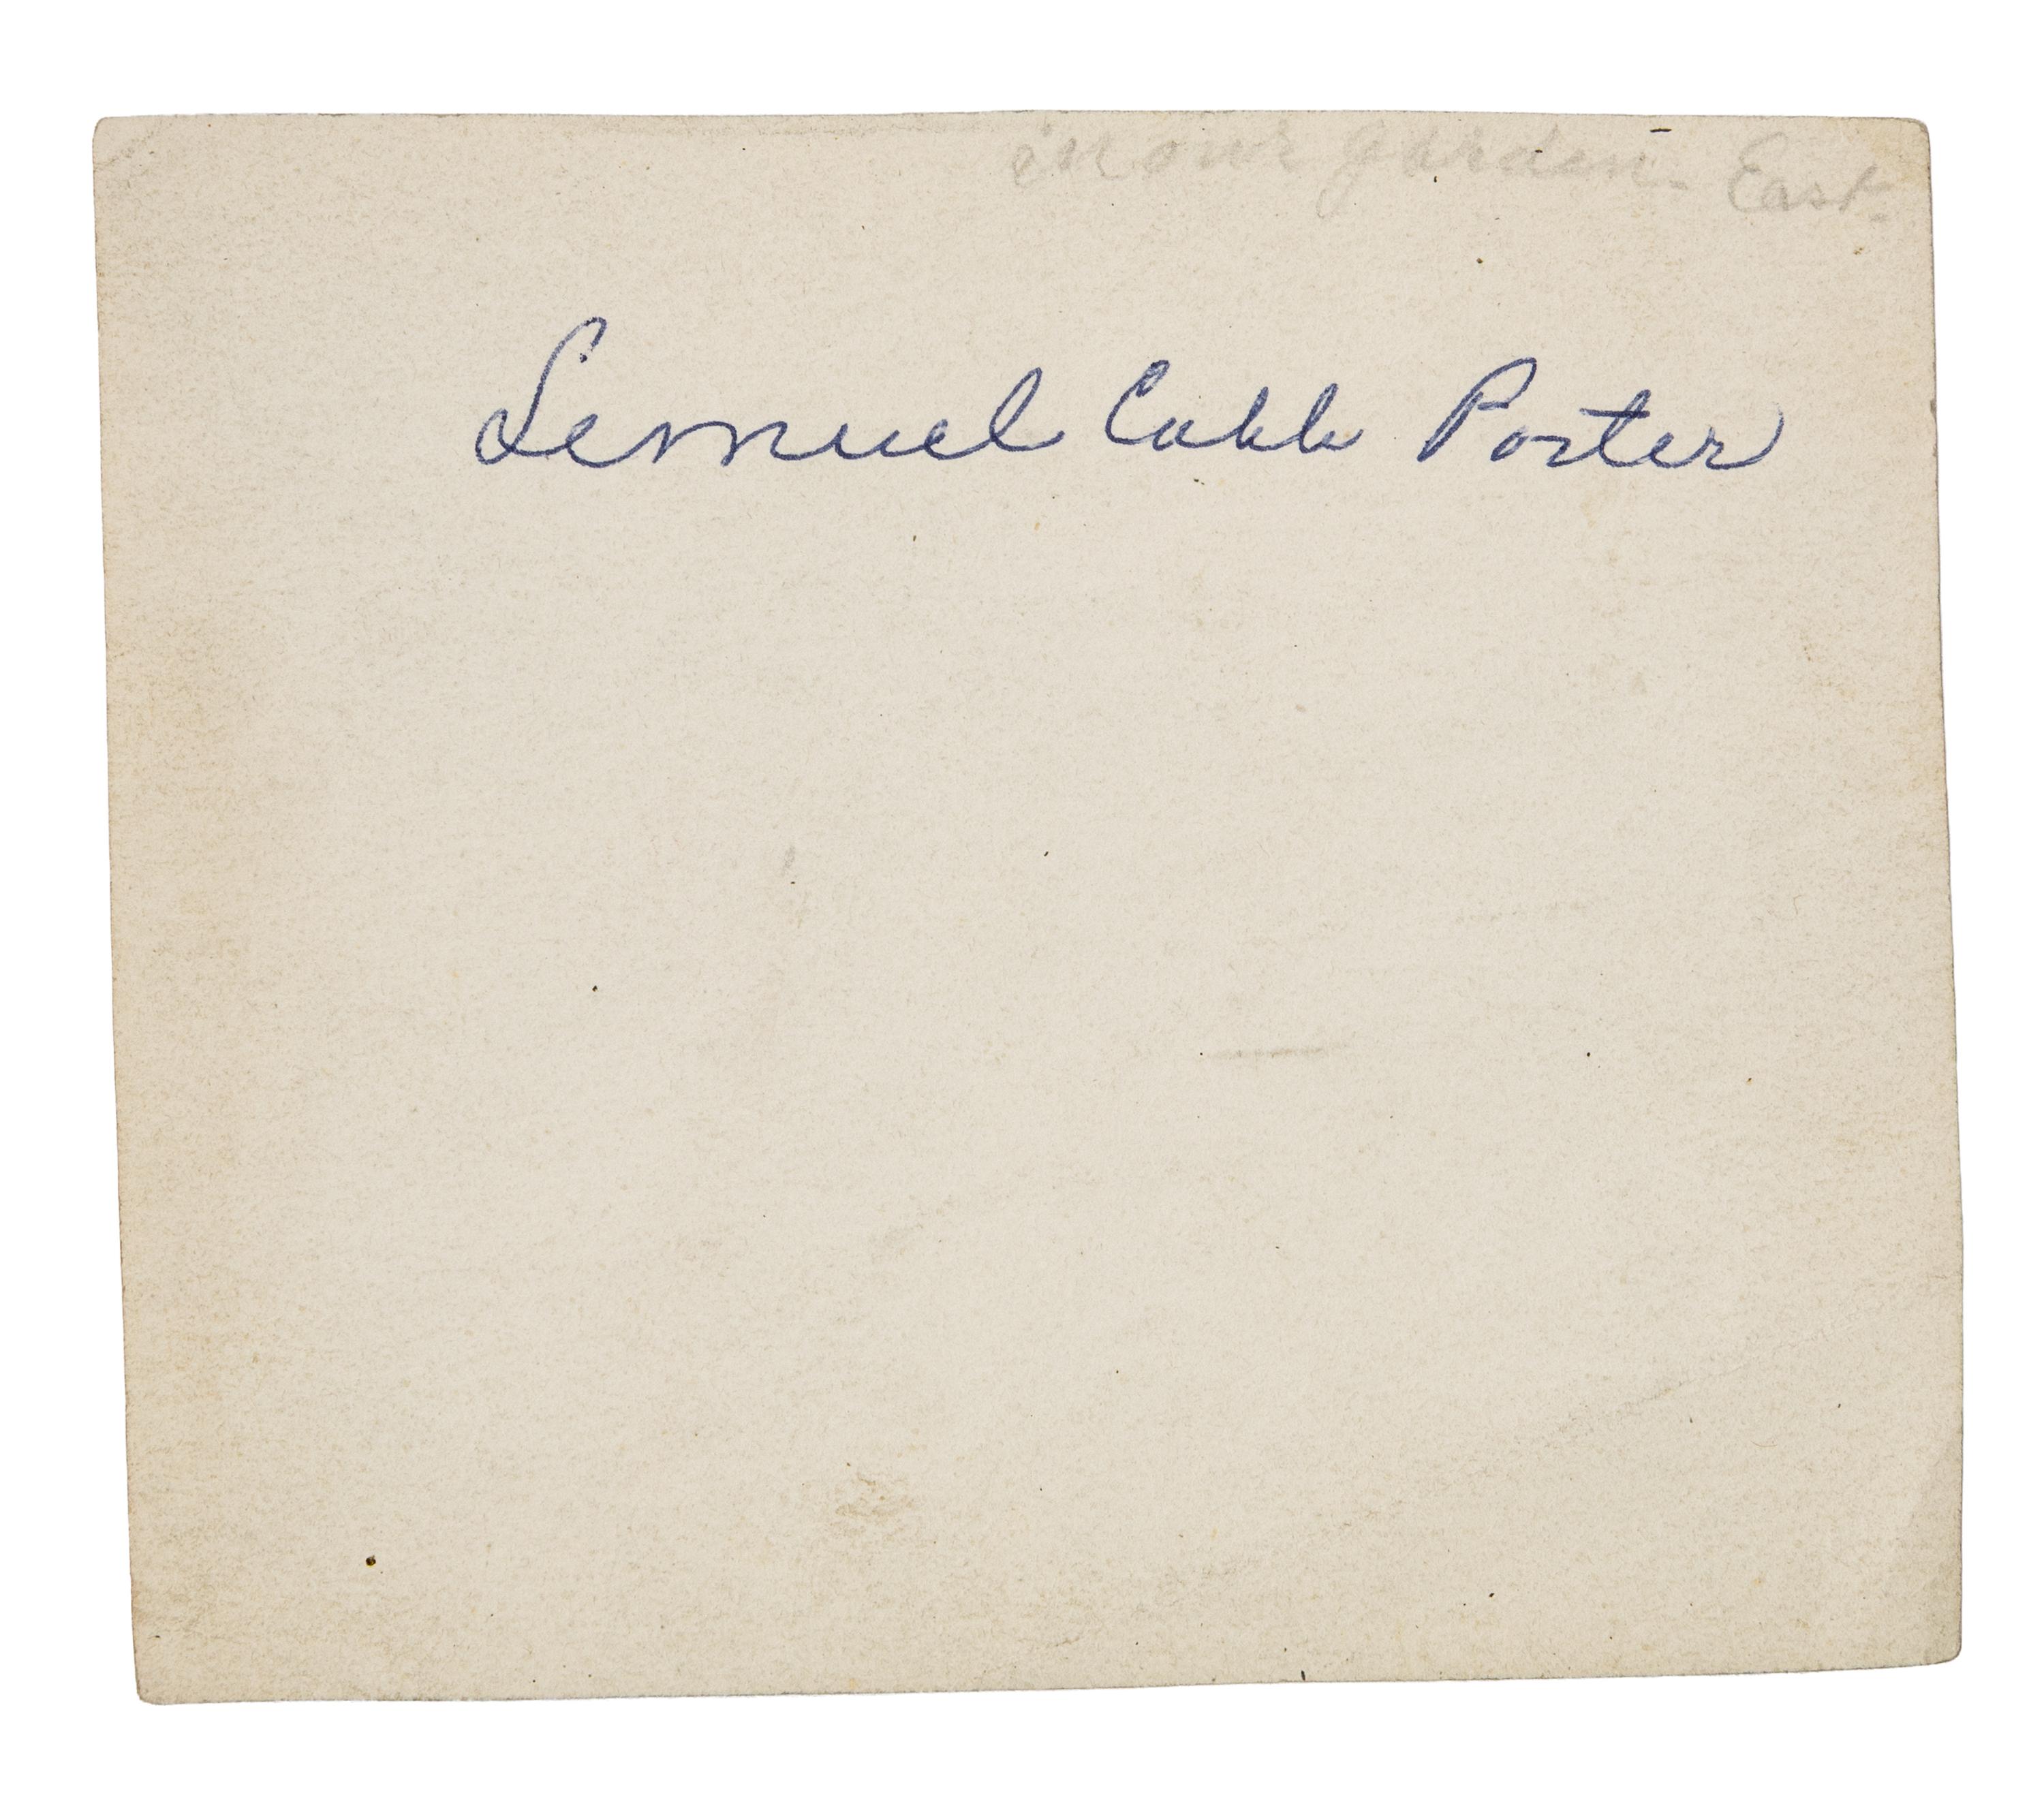 in our garden. East.
Lemuel Cobb Porter